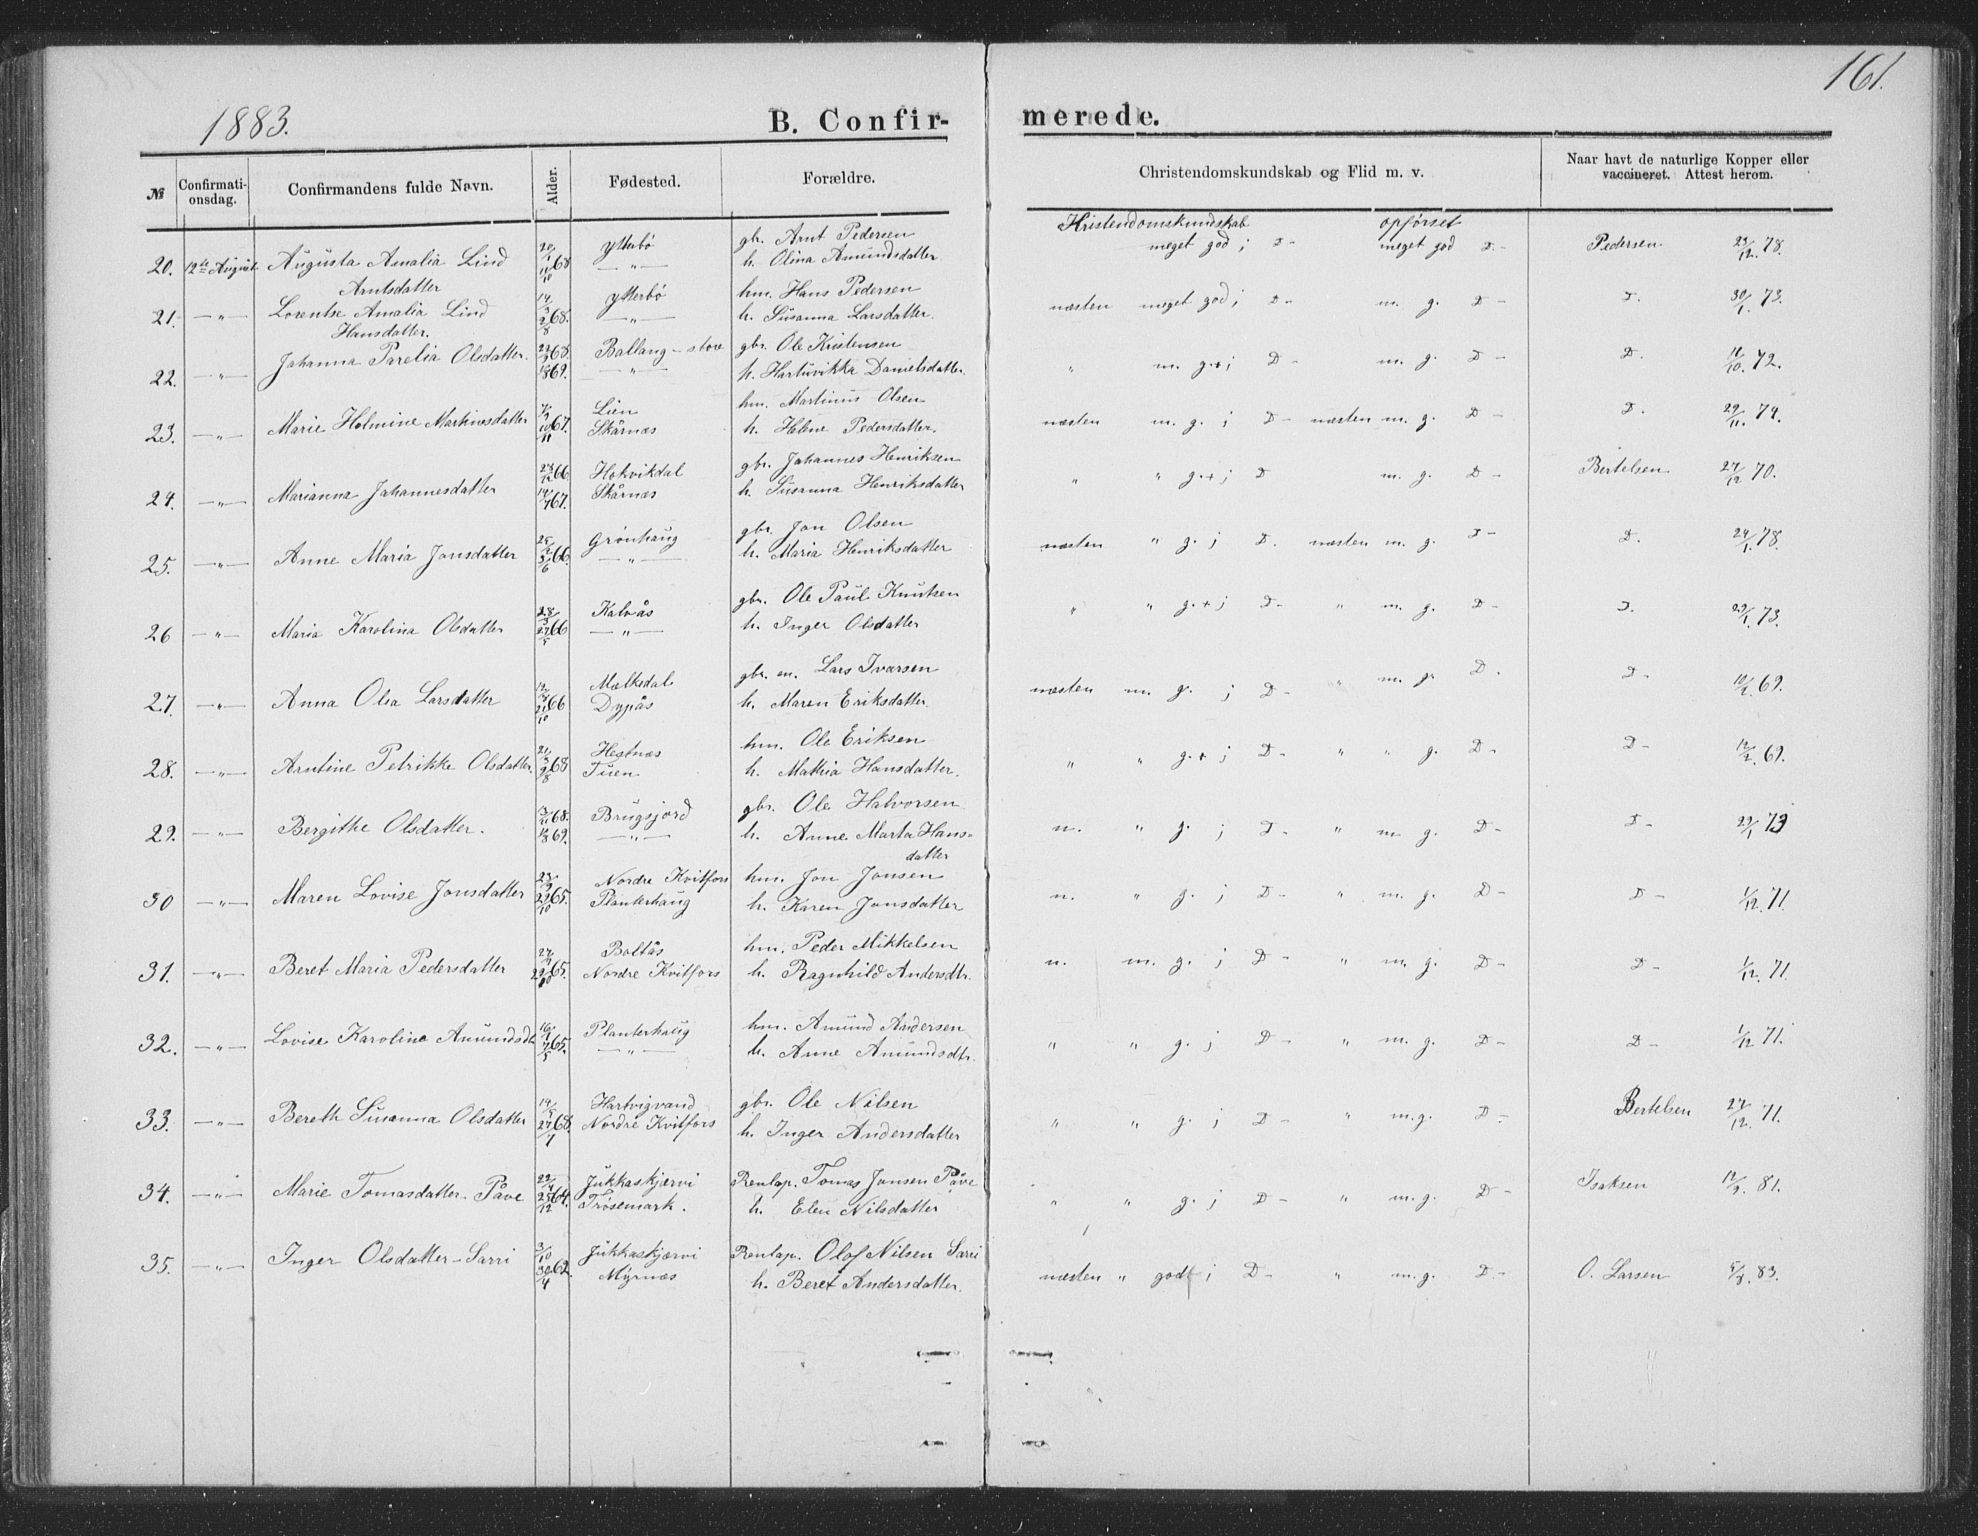 161.
1883.
B. Confir-
merede.
№ Confirmati-onsdag. Confirmandens fulde Navn. Alder. Fødested. Forældre. Christendomskundskab og Flid m. v. Naar havt de naturlige Kopper eller vaccineret. Attest herom.
Kristendomskundskab opførsel
20. 12te August Augusta Amalia Lind 20/1 68 Ytterbø gbr. Arnt Pedersen meget god ; D- meget god D- Pedersen 23/12. 78.
Arntsdatter 11/10 — " — h. Olina Amundsdatter
21. — " — Lorentse Amalia Lind 14/3 68. Ytterbø hm. Hans Pedersen næsten meget god ; D- m. g. D- D. 30/1. 73.
Hansdatter. 2/8 — " — h. Susanna Larsdatter.
22. — " — Johanna Parelia Olsdatter. 68. Ballang-store gbr. Ole Kristensen " m. g.+; D- m. g. D- D. 11/10. 72.
69. — " — h. Hartvikka Danielsdatter.
23. — " — Marie Holmine Martinusdatter 67. Lien hm. Martinus Olsen næsten m. g. ; D- næsten m. g. D- D. 29/11. 74.
Skårnæs h. Helene Pedersdatter.
24. — " — Marianna Johannesdatter 23/12 66 Hokvikdal gbr. Johannes Henriksen " " g.+ ; D m. g. D- Bertelsen 27/12 70.
67. Skårnæs h. Susanna Henriksdatter
25. — " — Anne Maria Jonsdatter 25/2 66. Grønhaug gbr. Jon Olsen næsten " g. ; D. næsten m. g. D- D. 24/1. 78.
3/6 — " — h. Maria Henriksdatter
26 — " — Maria Karolina Olsdatter 28/3 66 Kalvås gbr. Ole Paul Knutsen " " g.+ ; D- " m. g. D- D. 29/1. 73.
27/5 — " — h. Inger Olsdatter
27. — " — Anna Olsa Larsdatter 66 Mælkedal gbr. en. Lars Ivarsen næsten m. g. ; D- " m. g. D. D- 69.
21/10 Dypås h. Maren Eriksdatter.
28. — " — Arntine Petrikke Olsdatter 21/3 68 Hestnæs hm. Ole Eriksen " " g.+ ; D- " " g. D- D- 69.
9/8 Tuen h. Mathia Hansdatter.
29. — " — Bergithe Olsdatter. 3/11 68. Brugsjord gbr. Ole Halvorsen n. " g. ; D- " m. g. D- D- 29/1 73
69. — " — h. Anne Marta Hans-
datter
30 — " — Maren Lovise Jonsdatter 65. Nordre Kvitfors hm. Jon Jonsen n. " g. ; D- " m. g. D- D- 1/12. 71.
22/10 Planterhaug h. Karen Jonsdatter
31. — " — Beret Maria Pedersdatter 65. Boltås hm. Peder Mikkelsen n. m. g. ; D- " m. g. D- D- 1/12. 71.
Nordre Kvitfors h. Ragnhild Andersdtr.
32. — " — Lovise Karoline Amundsdt. 65. Planterhaug hm. Amund Andersen " " g. ; D- " m. g. D- D- 1/12 71.
7/5 — " — h. Anne Amundsdtr.
33. — " — Bereth Susanna Olsdatter 14/5 68. Hartvigvand gbr. Ole Nilsen " " g. ; D- " m. g. D- Bertelsen 27/12. 71.
27/7 Nordre Kvitfors h. Inger Andersdatter
34. — " — Marie Tomasdatter-Påve 64. Jukkaskjærvi Renlap. Tomas Jonsen Påve " " g. ; D- " m. g. D- Isaksen 12/9. 81.
25/12 Trøsemark. h. Elen Nilsdatter
35. — " — Inger Olsdatter-Sarri 3/10 62. Jukkaskjærvi Renlap. Olof Nilsen Sarri næsten " godt ; D- " m. g. D.- O. Larsen 5/8. 83.
30/4 Myrnæs h. Beret Andersdatter.